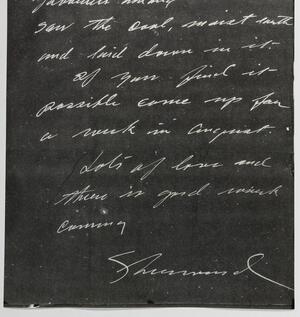 saw the cool, moist earth
and laid down in it.
If you find it
possible come up for
a week in August.
Lots of love and
there is good work
coming
Sherwood